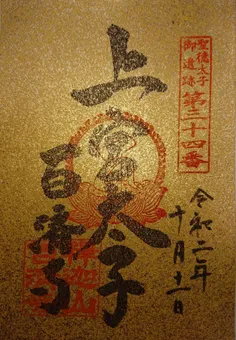 聖徳太子
御遺跡
第三十四番
上宮太子
百済寺
令和二年
十月十一日